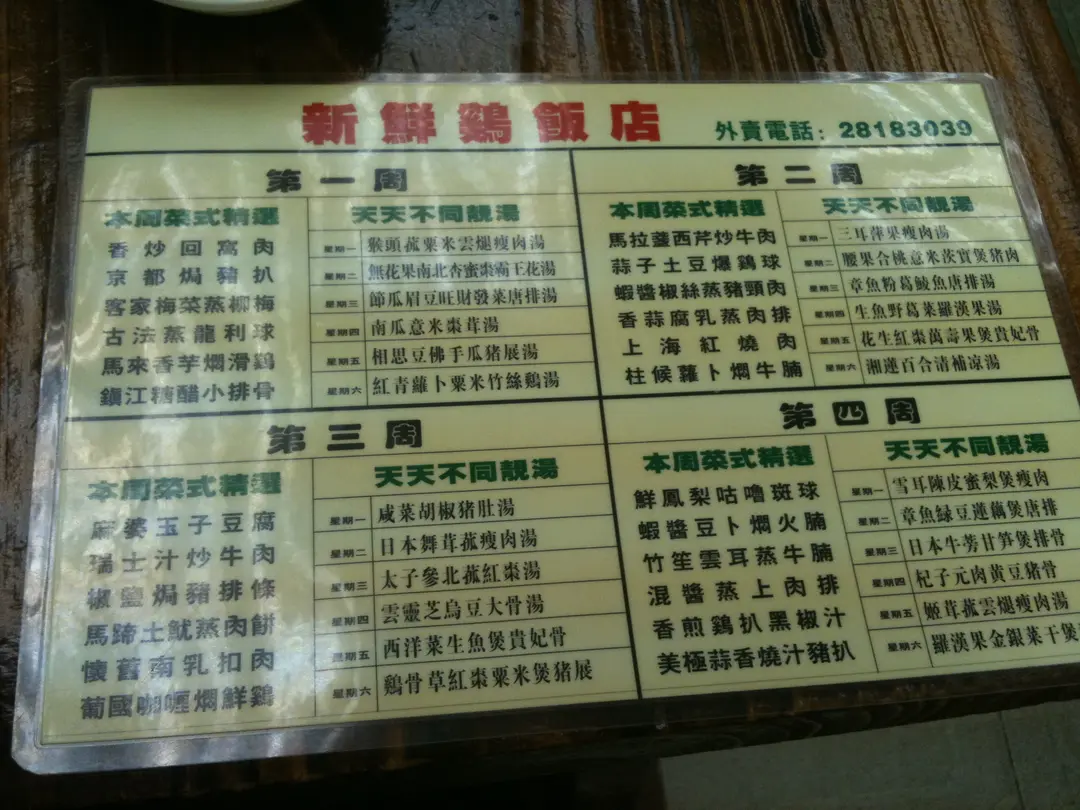 新鮮鷄飯店
外賣電話：28183039
第一周
本周菜式精選
香炒回窩肉
京都焗豬扒
客家梅菜蒸柳梅
古法蒸龍利球
馬來香芋燜滑鷄
鎮江糖醋小排骨
天天不同靚湯
星期一 猴頭菰粟米雲腿瘦肉湯
星期二 無花果南北杏蜜棗霸王花湯
星期三 節瓜眉豆旺財發菜唐排湯
星期四 南瓜意米棗茸湯
星期五 相思豆佛手瓜豬展湯
星期六 紅青蘿卜粟米竹絲鷄湯
第二周
本周菜式精選
馬拉盞西芹炒牛肉
蒜子土豆爆鷄球
蝦醬椒絲蒸豬頸肉
香蒜腐乳蒸肉排
上海紅燒肉
柱候蘿卜燜牛腩
天天不同靚湯
星期一 三耳萍果瘦肉湯
星期二 腰果合桃意米茨實煲豬肉
星期三 章魚粉葛鯪魚唐排湯
星期四 生魚野葛菜羅漢果湯
星期五 花生紅棗萬壽果煲貴妃骨
星期六 湘蓮百合清補凉湯
第三周
本周菜式精選
麻婆玉子豆腐
瑞士汁炒牛肉
椒鹽焗豬排條
馬蹄土魷蒸肉餅
懷舊南乳扣肉
葡國咖喱燜鮮鷄
天天不同靚湯
星期一 咸菜胡椒豬肚湯
星期二 日本舞茸菰瘦肉湯
星期三 太子參北菰紅棗湯
星期四 雲靈芝烏豆大骨湯
星期五 西洋菜生魚煲貴妃骨
星期六 鷄骨草紅棗粟米煲豬展
第四周
本周菜式精選
鮮鳳梨咕嚕斑球
蝦醬豆卜燜火腩
竹笙雲耳蒸牛腩
混醬蒸上肉排
香煎鷄扒黑椒汁
美極蒜香燒汁豬扒
天天不同靚湯
星期一 雪耳陳皮蜜梨煲瘦肉
星期二 章魚緑豆蓮藕煲唐排
星期三 日本牛蒡甘笋煲排骨
星期四 杞子元肉黄豆豬骨
星期五 姬茸菰雲腿瘦肉湯
星期六 羅漢果金銀菜干煲